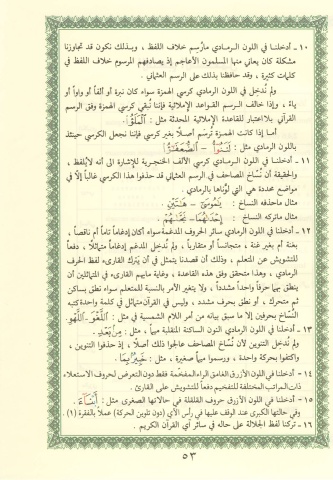 ١٠ - أدخلنا في اللون الرمادي مارُسِم خلاف اللفظ ، وبذلك نكون قد تجاوزنا
مشكلة كان يعاني منها المسلمون الأعاجم إذ يصادفهم المرسوم خلاف اللفظ في
كلمات كثيرة ، وقد حافظنا بذلك على الرسم العثماني .
ولم نُدخل في اللون الرمادي كرسي الهمزة سواء كان نبرة أو ألفاً أو واواً أو
ياءً ، وإذا خالف الرسم القواعد الإملائية فإننا نُبقي كرسي الهمزة وفق الرسم
القرآني بلااعتبار للقاعدة الإملائية المحدثة مثل :
أما إذا كانت الهمزة تُرسَم أصلاً بغير كرسي فإننا نجعل الكرسي حينئذ
باللون الرمادي مثل :
١١ - أدخلنا في اللون الرمادي كرسي الألف الخنجرية للإشارة الى أنه لايُلفظ ،
والحقيقة أن نُسَّاخ المصاحف في الرسم العثماني قد حذفوا هذا الكرسي غالباً إلّا في
مواضع محددة هي التي لوَّناها بالرمادي .
مثال ماحذفه النساخ : يَٰمُوسَىٰ - هَٰتَيْنِ .
مثال ماتركه النساخ : إِحْدَىٰهُمَا -
١٢ - أدخلنا في اللون الرمادي سائر الحروف المدغمة سواء أكان إدغاماً تاماً أم ناقصاً ،
بغنة أم بغير غنة ، متجانساً أو متقارباً ، ولم نُدخل المدغم إدغاماً متماثلاً ، دفعاً
للتشويش عن المتعلم ، وذلك أن قصدنا يتمثل في أن يَترك القارىء لفظ الحرف
الرمادي ، وهذا متحقق وفق هذه القاعدة ، وغاية مايهم القارىء في المتماثلين أن
ينطق بهما حرفاً واحداً مشدداً ، ولا يتغير الأمر بالنسبة للمتعلم سواء نطق بساكن
ثم متحرك ، أو نطق بحرف مشدد ، وليس في القرآن متماثل في كلمة واحدة كتبه
النُسّاخ بحرفين إلا ما سبق بيانه من أمر اللام الشمسية في مثل : اللَّغْوَ - اللَّهْوِ .
١٣ - أدخلنا في اللون الرمادي النون الساكنة المنقلبة ميماً ، مثل : مِنۢ بَعْدِ .
ولم نُدخل التنوين لأن نُسَّاخ المصاحف عالجوا ذلك أصلاً ، إذ حذفوا التنوين ،
واكتفوا بحركة واحدة ، ورسموا ميماً صغيرة ، مثل : خَبِيرًۢا بِمَا .
١٤ - أدخلنا في اللون الأزرق الغامق الراء المفخمة فقط دون التعرض لحروف الاستعلاء
ذات المراتب المختلفة للتفخيم دفعاً للتشويش على القارئ .
١٥ - أدخلنا في اللون الأزرق حروف القلقلة في حالاتها الصغرى مثل :
وفي حالتها الكبرى عند الوقف عليها في رأس الآي (دون تلوين الحركة) عملاً بالفقرة (١) .
١٦ - تركنا لفظ الجلالة على حاله في سائر آي القرآن الكريم .
٥٣